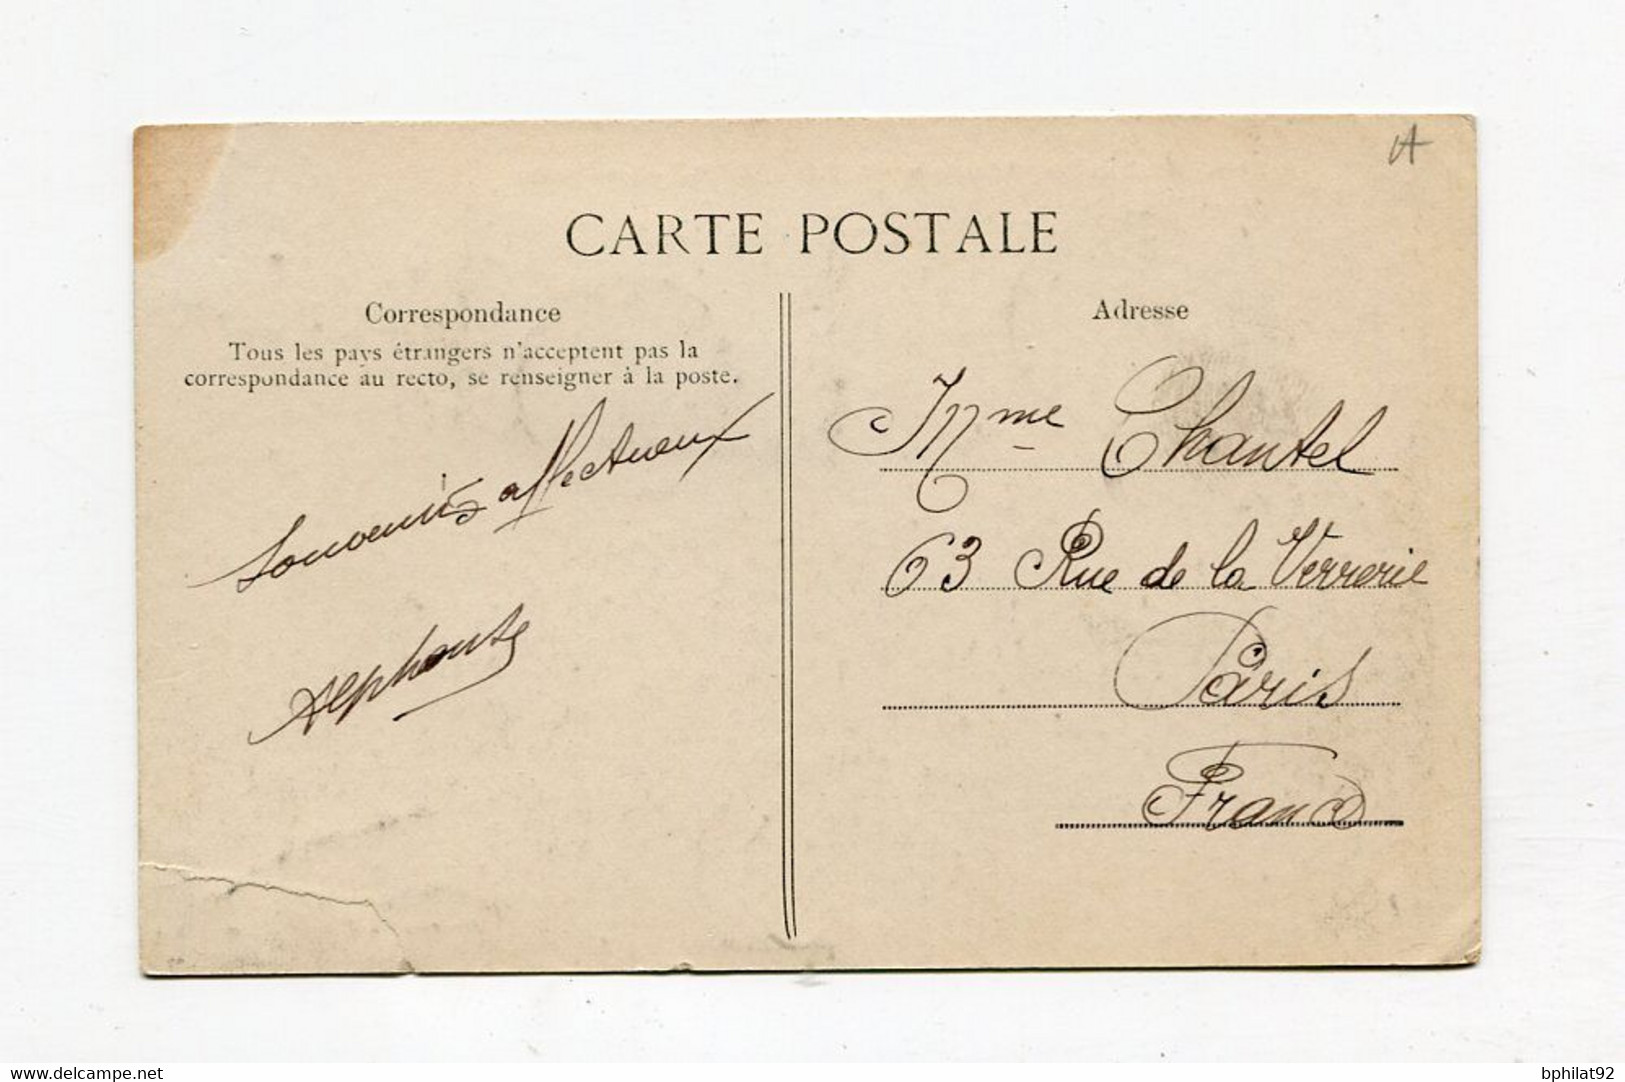 A
CARTE POSTALE
Correspondance
Tous les pays étrangers n'acceptent pas la
correspondance au recto, se renseigner à la poste.
Souvenirs affectueux
Alphonse
Adresse
Mme Chantel
63 Rue de la Verrerie
Paris
France
www.delcampe.net
bphilat92